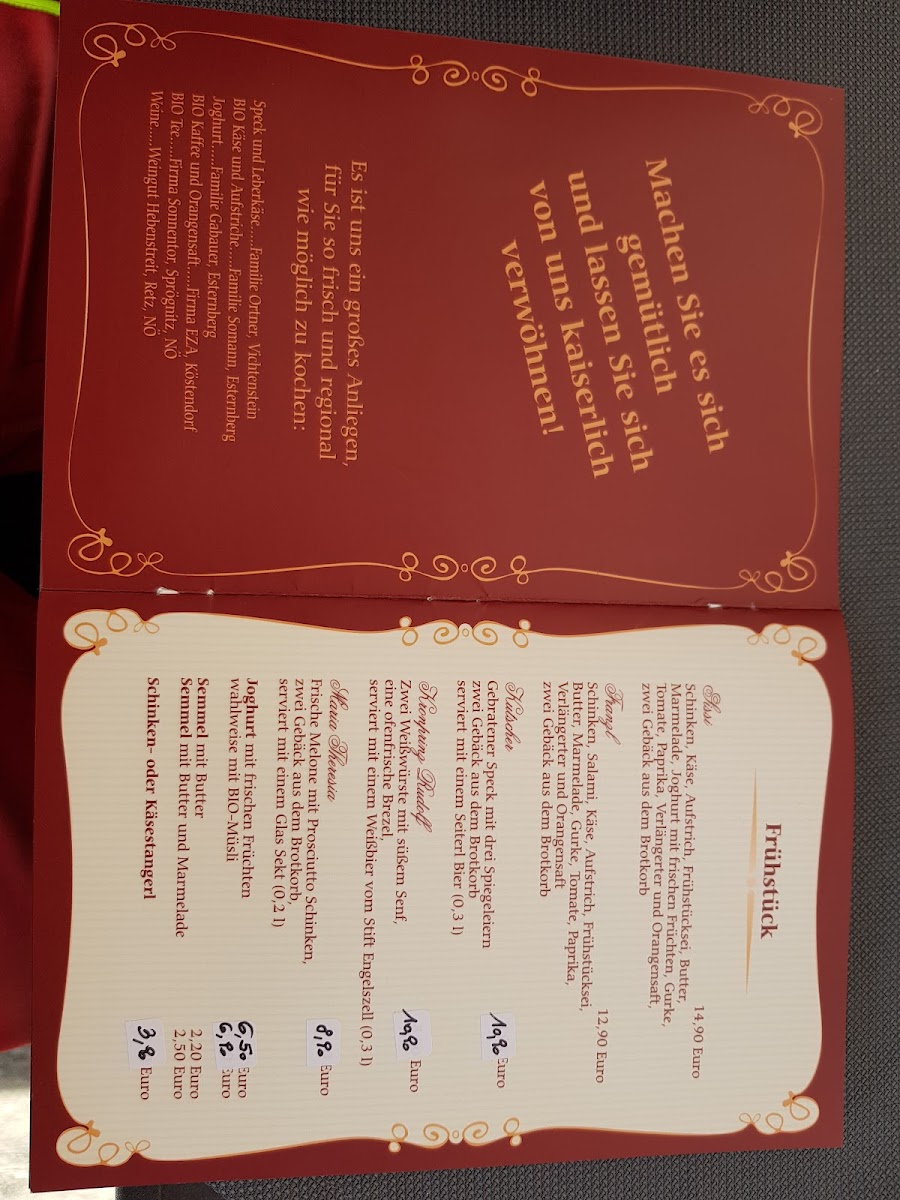 Machen Sie es sich
gemütlich
und lassen Sie sich
von uns kaiserlich
verwöhnen!
Es ist uns ein großes Anliegen,
für Sie so frisch und regional
wie möglich zu kochen:
Speck und Leberkäse.....Familie Ortner, Vichtenstein
BIO Käse und Aufstriche.....Familie Somann, Esternberg
Joghurt.....Familie Gabauer, Esternberg
BIO Kaffee und Orangensaft.....Firma EZA, Köstendorf
BIO Tee.....Firma Sonnentor, Sprögnitz, NÖ
Weine.....Weingut Hebenstreit, Retz, NÖ
Frühstück
Sissi 14,90 Euro
Schinken, Käse, Aufstrich, Frühstücksei, Butter,
Marmelade, Joghurt mit frischen Früchten, Gurke,
Tomate, Paprika, Verlängerter und Orangensaft,
zwei Gebäck aus dem Brotkorb
Franzl 12,90 Euro
Schinken, Salami, Käse, Aufstrich, Frühstücksei,
Butter, Marmelade, Gurke, Tomate, Paprika,
Verlängerter und Orangensaft
zwei Gebäck aus dem Brotkorb
Kutscher
Gebratener Speck mit drei Spiegeleiern 10,90 Euro
zwei Gebäck aus dem Brotkorb
serviert mit einem Seiterl Bier (0,3 l)
Kronprinz Rudolf
Zwei Weißwürste mit süßem Senf, 10,90 Euro
eine ofenfrische Brezel,
serviert mit einem Weißbier vom Stift Engelszell (0,3 l)
Maria Theresia
Frische Melone mit Prosciutto Schinken, 8,90 Euro
zwei Gebäck aus dem Brotkorb,
serviert mit einem Glas Sekt (0,2 l)
Joghurt mit frischen Früchten 6,50 Euro
wahlweise mit BIO-Müsli 6,90 Euro
Semmel mit Butter 2,20 Euro
Semmel mit Butter und Marmelade 2,50 Euro
Schinken- oder Käsestangerl 3,90 Euro